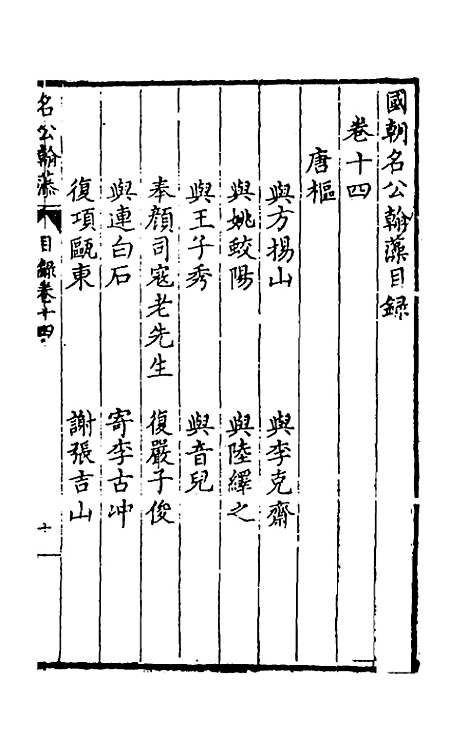 國朝名公翰藻目録
卷十四
唐樞
與方揚山 與李克齋
與姚鮫陽 與陸繹之
與王子秀 與音兒
奉顏司寇老先生 復嚴子俊
與連白石 寄李古冲
復項甌東 謝張吉山
名公翰藻 目録卷十四